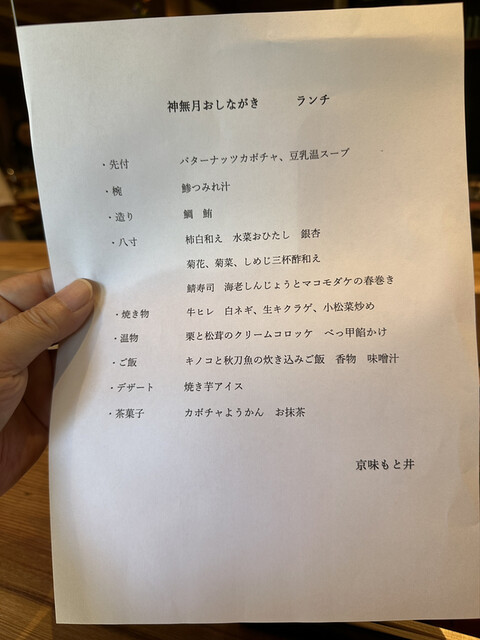 神無月おしながき　　ランチ
・先付　バターナッツカボチャ、豆乳温スープ
・椀　鯵つみれ汁
・造り　鯛　鮪
・八寸　柿白和え　水菜おひたし　銀杏
菊花、菊菜、しめじ三杯酢和え
鯖寿司　海老しんじょうとマコモダケの春巻き
・焼き物　牛ヒレ　白ネギ、生キクラゲ、小松菜炒め
・温物　栗と松茸のクリームコロッケ　べっ甲餡かけ
・ご飯　キノコと秋刀魚の炊き込みご飯　香物　味噌汁
・デザート　焼き芋アイス
・茶菓子　カボチャようかん　お抹茶
京味もと井